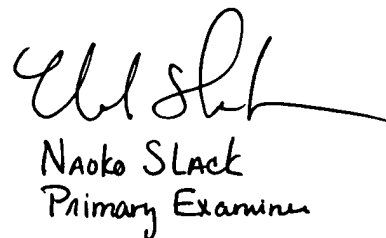 NAOKO SLACK
Primary Examiner